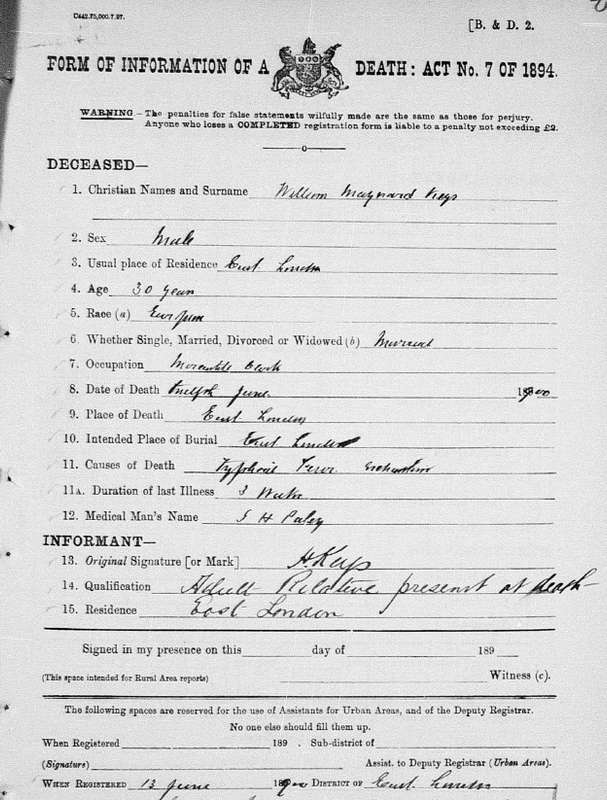 C442.75,000.7.97.
[B. & D. 2.
FORM OF INFORMATION OF A DEATH: ACT No. 7 OF 1894.
WARNING.—The penalties for false statements wilfully made are the same as those for perjury.
Anyone who loses a COMPLETED registration form is liable to a penalty not exceeding £2.
DECEASED—
1. Christian Names and Surname William Maynard Keys
2. Sex Male
3. Usual place of Residence East London
4. Age 30 years
5. Race (a) European
6. Whether Single, Married, Divorced or Widowed (b) Married
7. Occupation Mercantile Clerk
8. Date of Death twelfth June 1900
9. Place of Death East London
10. Intended Place of Burial East London
11. Causes of Death Typhoid Fever Exhaustion
11A. Duration of last Illness 3 Weeks
12. Medical Man's Name S H Paley
INFORMANT—
13. Original Signature [or Mark] H. Keys
14. Qualification Adult Relative present at death
15. Residence East London
Signed in my presence on this day of 189
(This space intended for Rural Area reports) Witness (c).
The following spaces are reserved for the use of Assistants for Urban Areas, and of the Deputy Registrar.
No one else should fill them up.
When Registered 189 . Sub-district of
(Signature) Assist. to Deputy Registrar (Urban Areas).
WHEN REGISTERED 13 June 1900 DISTRICT OF East London